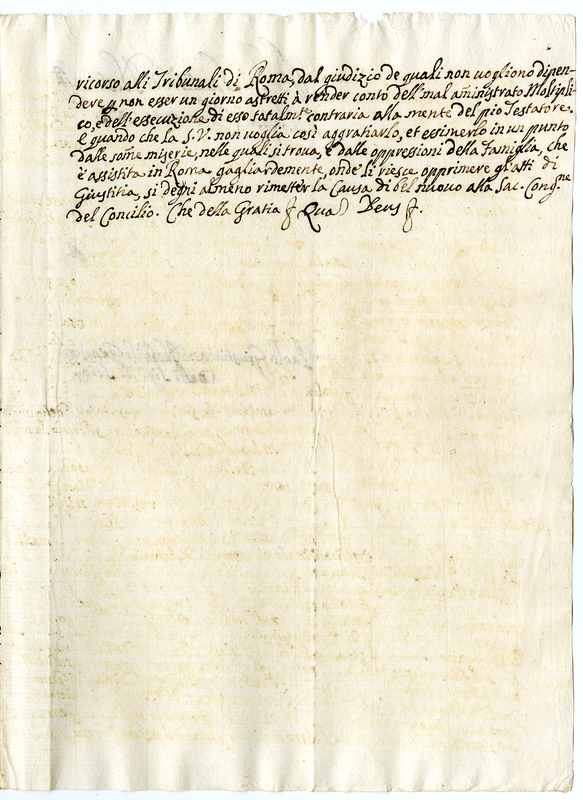 ricorso alli Tribunali di Roma, dal giudizio de quali non uogliono dipen-
dere p non esser un giorno astretti à render conto dell'mal aministrato Moltipli-
co, e dell'essecuzione di esso totalmte contraria alla mente del pio Testatore.
E quando che la S.V. non uoglia così aggratiarlo, et essimerlo in un punto
dalle some miserie, nelle quali si troua, e dalle oppressioni della famiglia, che
è assistita in Roma gagliardemente, onde li riesce opprimere gl'atti di
Giustitia, si degni almeno rimetter la Causa di bel nuouo alla Sac. Congne
del Concilio. Che della Gratia Qua Deus